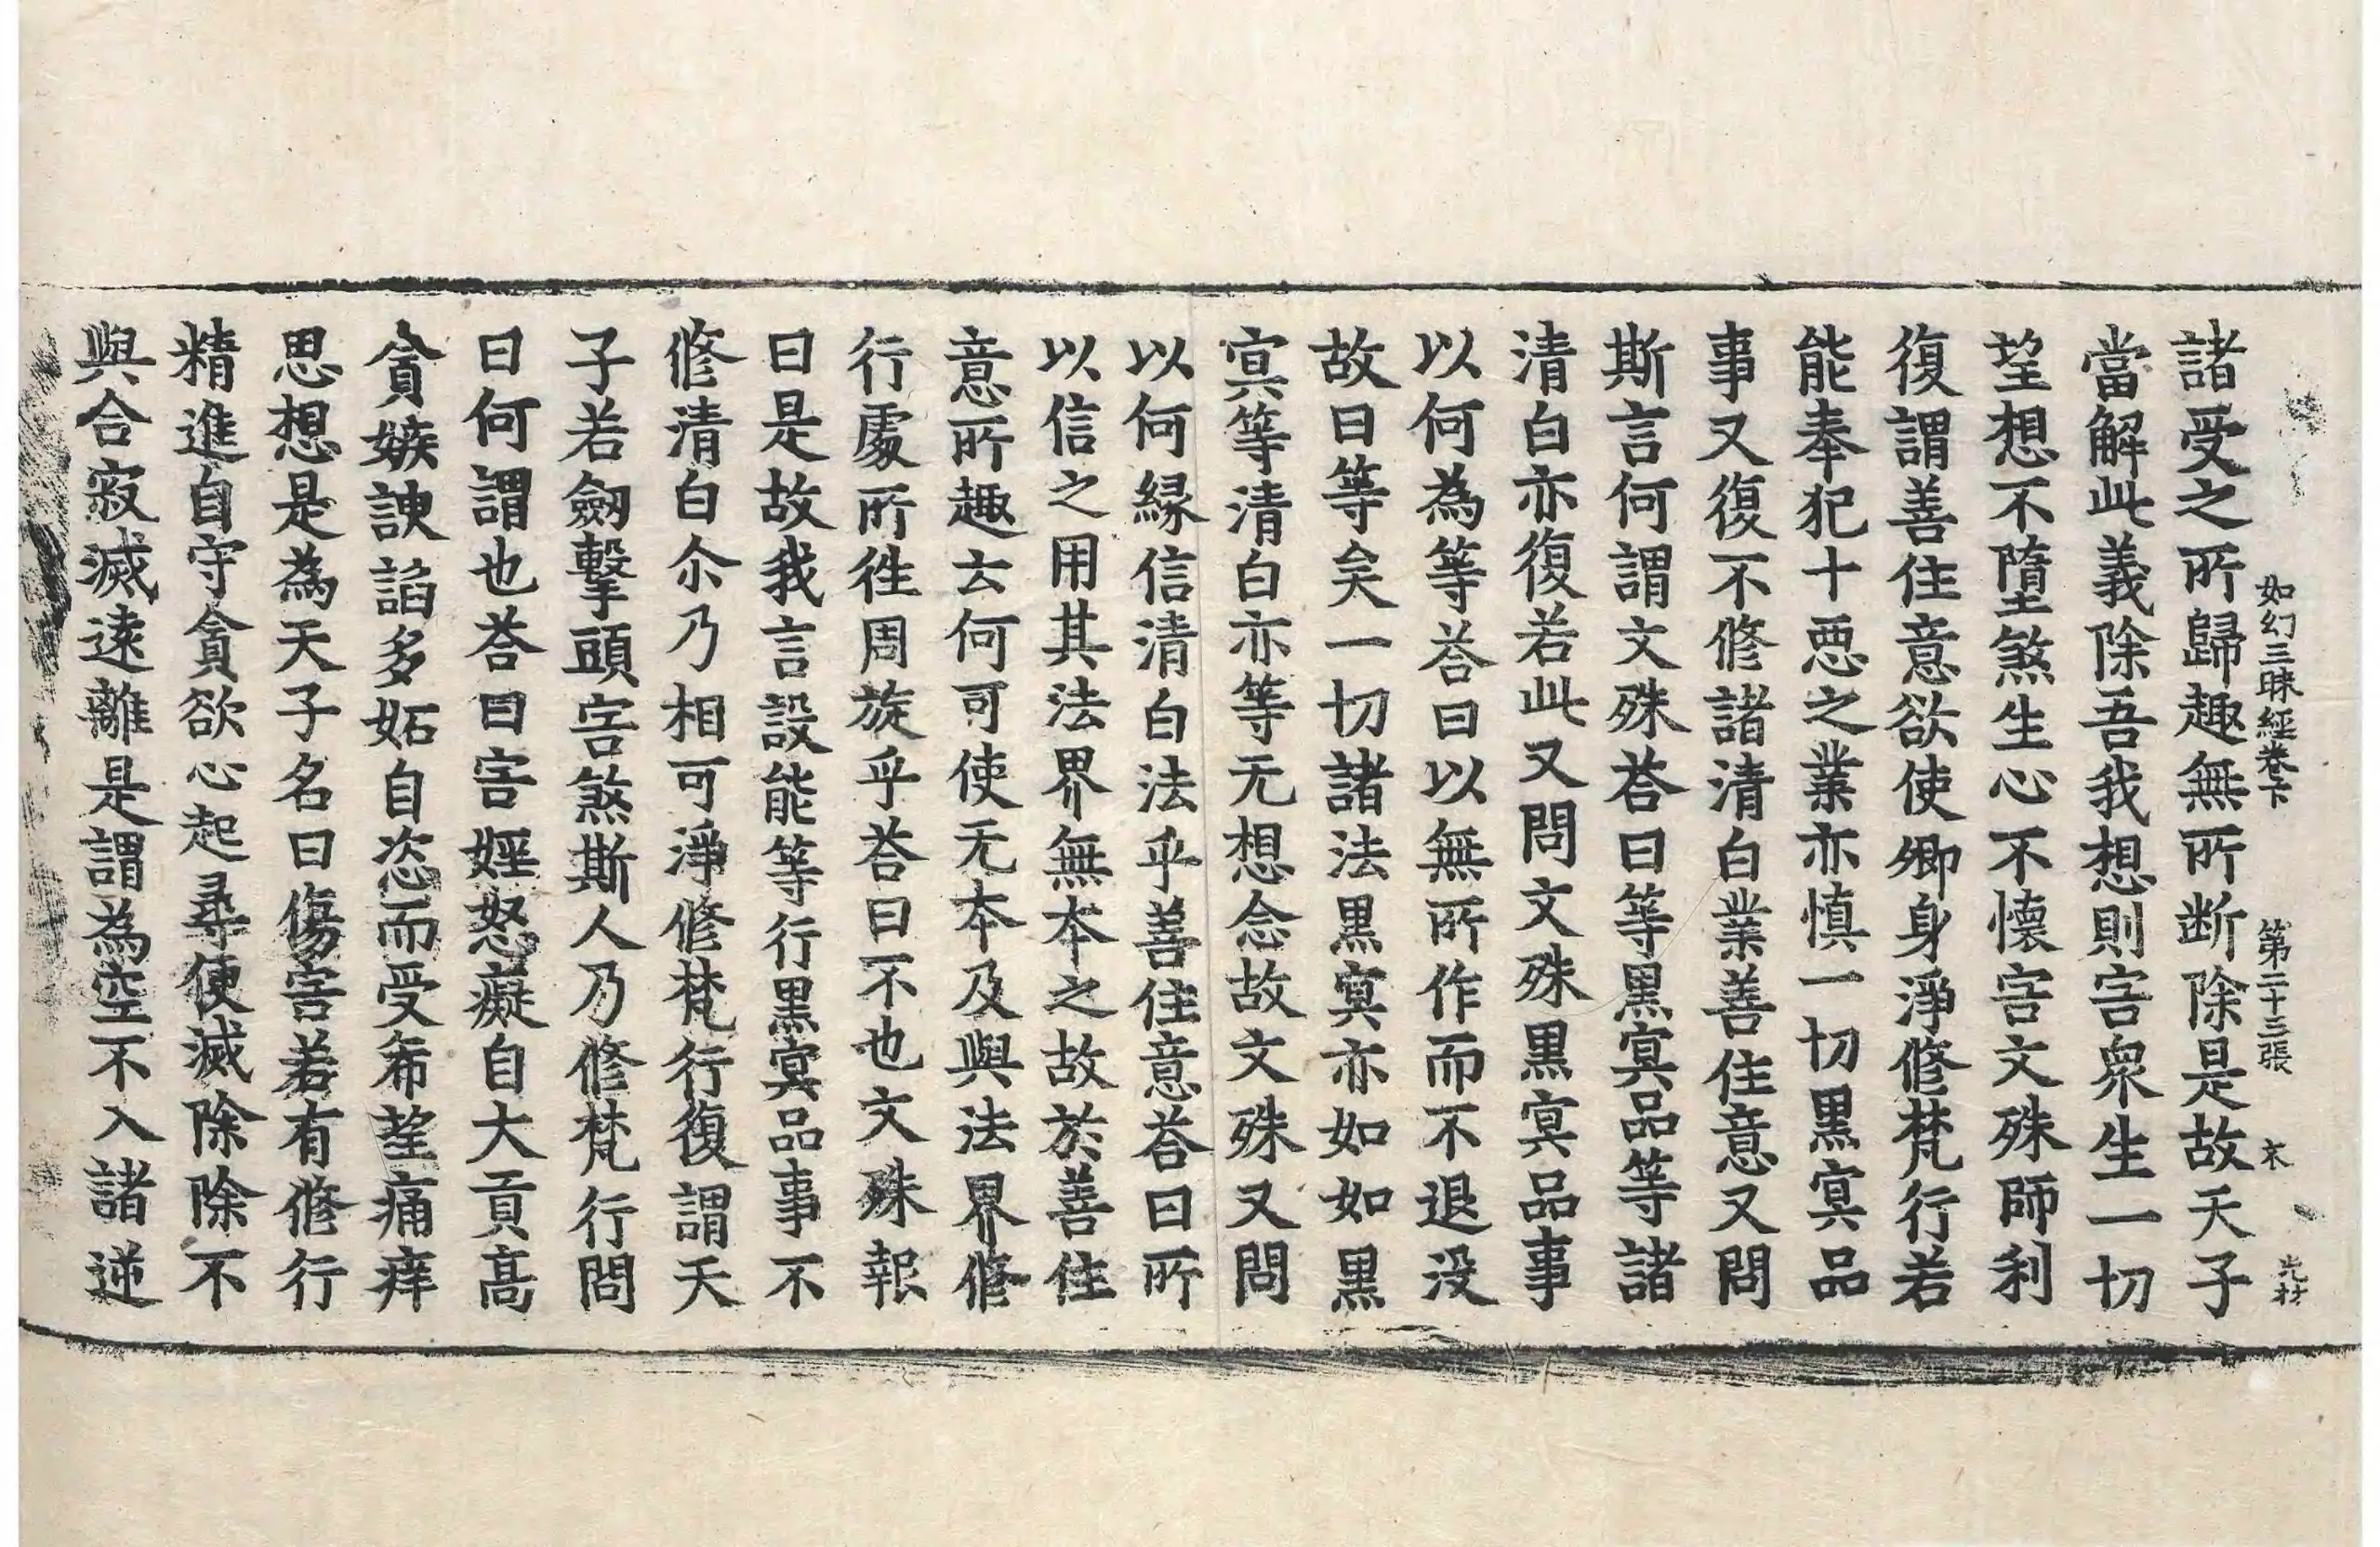 如幻三昧經卷下 第二十三張 衣 光林
諸受之所歸趣無所断除是故天子
當解此義除吾我想則害衆生一切
望想不墮煞生心不懷害文殊師利
復謂善住意欲使卿身淨修梵行若
能奉犯十惡之業亦慎一切黒冥品
事又復不修諸清白業善住意又問
斯言何謂文殊荅曰等黒冥品等諸
清白亦復若此又問文殊黒冥品事
以何為等荅曰以無所作而不退没
故曰等矣一切諸法黒冥亦如如黒
冥等清白亦等无想念故文殊又問
以何縁信清白法乎善住意荅曰所
以信之用其法界無夲之故於善住
意所趣去何可使无夲及與法界修
行處所徃周旋乎荅曰不也文殊報
曰是故我言設能等行黒冥品事不
修清白尒乃相可淨修梵行復謂天
子若劒擊頭害煞斯人乃修梵行問
曰何謂也荅曰害婬怒癡自大貢高
貪嫉諛諂多妬自恣而受希望痛痒
思想是為天子名曰傷害若有修行
精進自守貪欲心起尋便滅除除不
與合寂滅遠離是謂為空不入諸逆